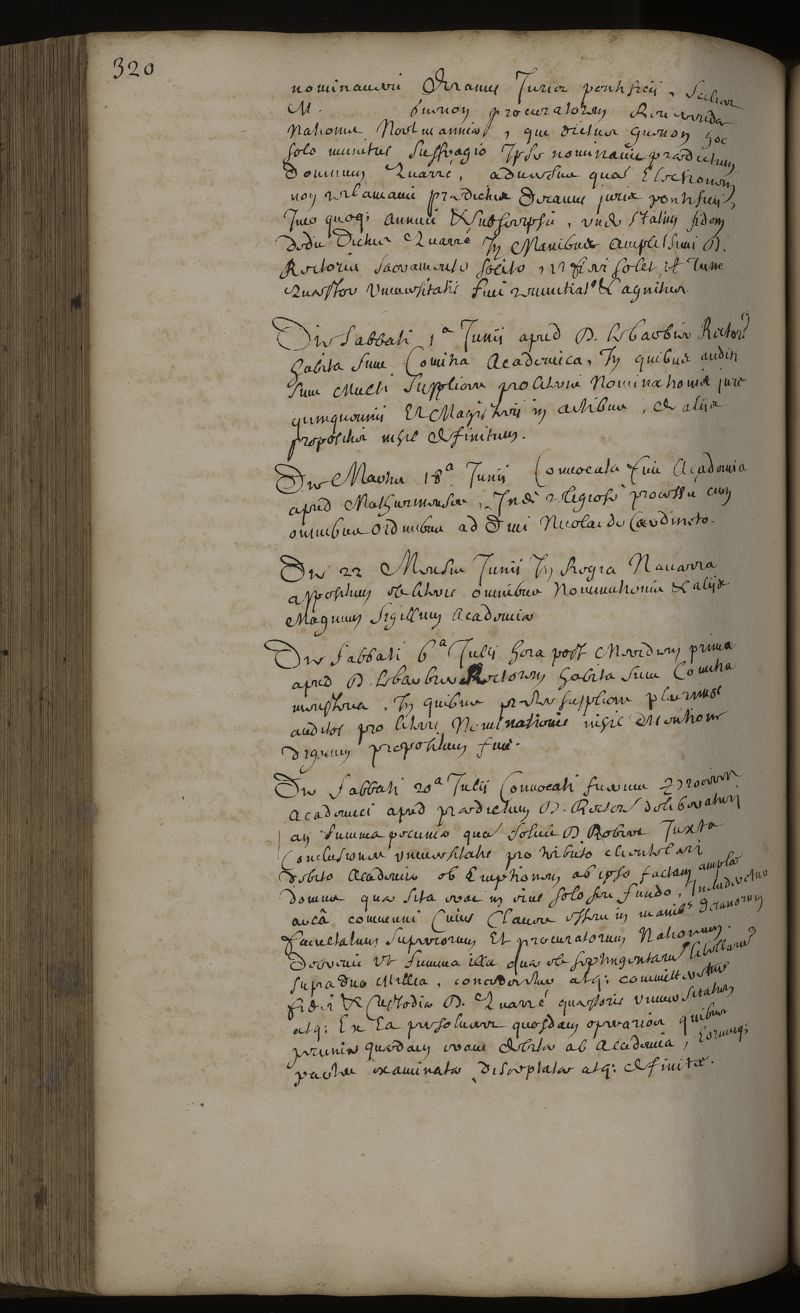 320
nominavit Decanus Juris pontificii, scilicet
M. procuratorem Reverendae
Nationis Normanniae, qui dictus hoc
solo munitus suffragio Ipse nominavit praedictum
dominum Quarré, adversus quas Electionem
non reclamavit praedictus Decanus juris pontificii,
Imo quoque annuit & subscripsit, unde statim fidem
Dedit Dictus Quarré In Manibus amplissimi D.
Rectoris sacramento solito, ut fieri solet, et Tunc
Quaestor Universitatis fuit renuntiatus & agnitus
Die Sabbati 1a Junii apud D. Rectorem
habita sunt Comitia Academica, In quibus auditi
sunt Multi supplices pro litteris Nominationis jure
quinquennii Et Magisterii in artibus, & aliis
propositis nihil definitum.
Die Martis 18a Junii Convocata fuit Academia
apud Mathurinenses, Inde religiose processit cum
omnibus ordinibus ad Divi Nicolai de Cardineto.
Die 22 Mensis Junii In Regia Navarra
appositum est litteris omnibus Nominationis & aliis
Magnum Sigillum Academiae
Die Sabbati 6a Julii hora post Meridiem prima
apud D. Rectorem habita sunt Comitia
menstrua, In quibus praeter supplices plurimos
auditos pro litteris Nominationis nihil Mentione
Dignum propositum fuit.
Die Sabbati 20a Julii Convocati fuerunt Proceres
Academici apud praedictum D. Rectorem deliberaturi
an summa pecuniae quam solvit D. Robine Juxta
Conclusiones universitatis pro tributo clientelari
debito Academiae ob Emptionem ab ipso factam
domus quae sita erat in eius solo seu fundo,
arcâ communi Cuius Claves essent in manibus Decanorum
Facultatum Superiorum Et procuratorum Nationum.
Decretum ut summa illa quae est septingentarum libellarum
supra duo Millia, concederetur atque committeretur
fidei & Custodiae D. Quarré quaestoris universitatis
atque Ex Ea persolveret quosdam operarios quibus
pecuniae quaedam erant debitae ab Academia,
partes examinatae disceptatae atque definitae.